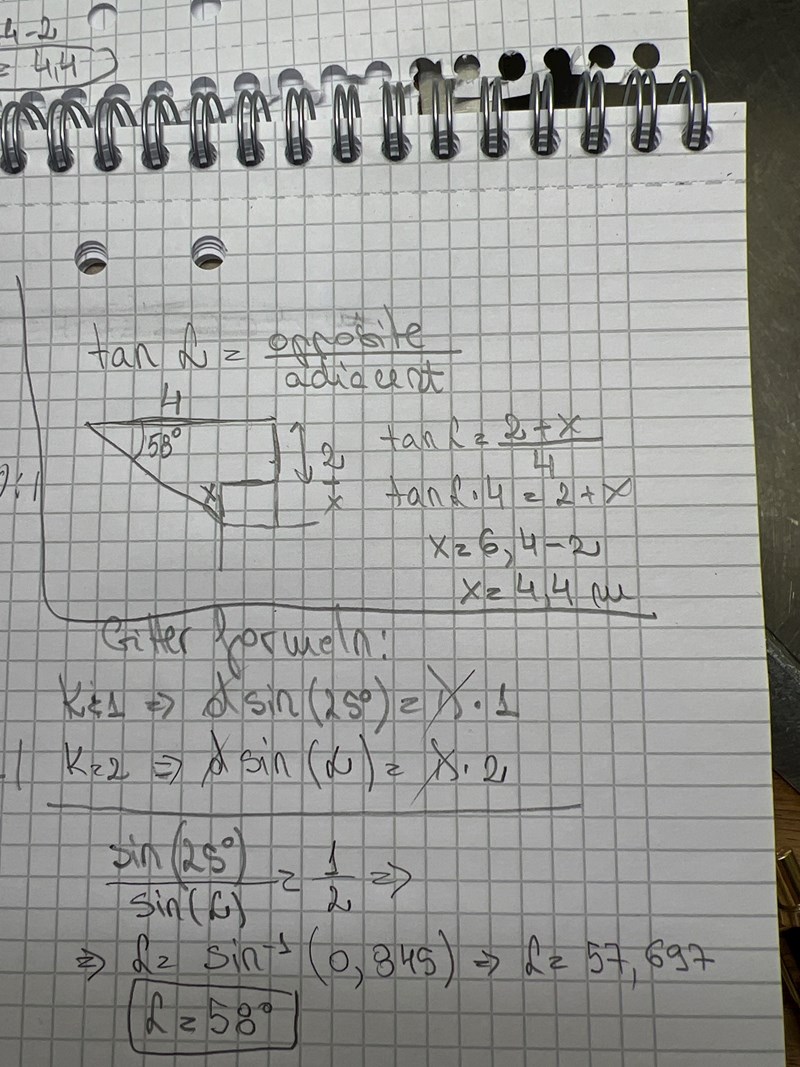 4-2
= 4,4
tan α = opposite / adjacent
4
58°
2
+
x
x
tan α = 2 + x / 4
tan α · 4 = 2 + x
x = 6,4 - 2
x = 4,4 m
Gitter formeln:
K=1 => d sin (25°) = λ · 1
K=2 => d sin (α) = λ · 2
sin (25°) / sin (α) = 1 / 2 =>
=> α = sin⁻¹ (0,845) => α = 57,697
α = 58°